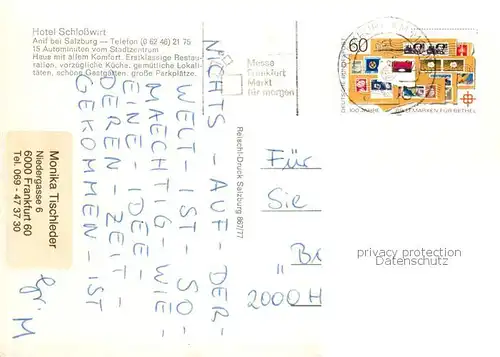 Hotel Schloßwirt
Anif bei Salzburg — Telefon (0 62 46) 21 75
15 Autominuten vom Stadtzentrum
Haus mit allem Komfort. Erstklassige Restau-
ration, vorzügliche Küche, gemütliche Lokali-
täten, schöne Gastgärten, große Parkplätze.
Messe
Frankfurt
Markt
für morgen
60
DEUTSCHE BUNDESPOST
100 JAHRE
BRIEFMARKEN FÜR BETHEL
NICHTS - AUF - DER -
WELT - IST - SO -
MAECHTIG - WIE -
EINE - IDEE -
DEREN - ZEIT -
GEKOMMEN - IST
Monika Tischleder
Niedergasse 6
6000 Frankfurt 60
Tel. 069 - 47 37 30
Reischl-Druck Salzburg 867/77
Für
Sie
2000 H
privacy protection
Datenschutz